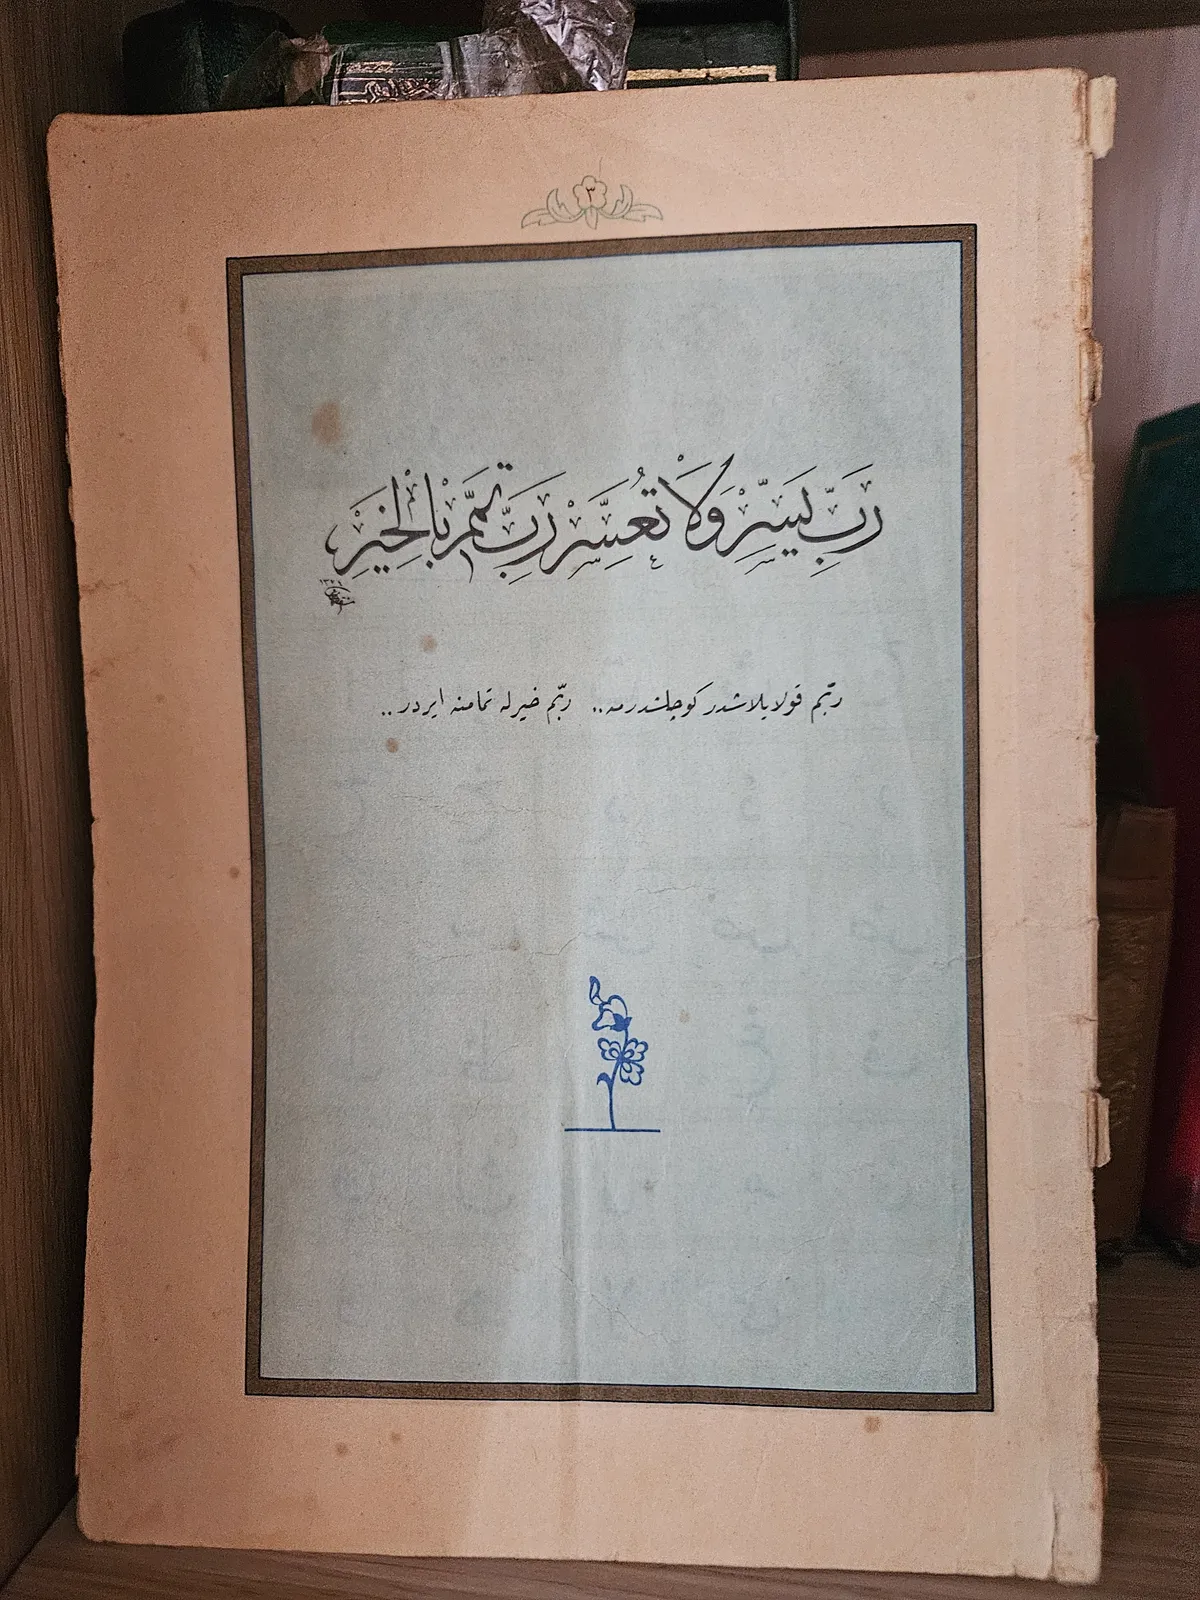 ٣
رَبِّ يَسِّرْ وَلَا تُعَسِّرْ رَبِّ تَمِّمْ بِالْخَيْرِ
ربّم قولايلاشدر كوجلشدرمه.. ربّم خيرله تمامنه ايردر..